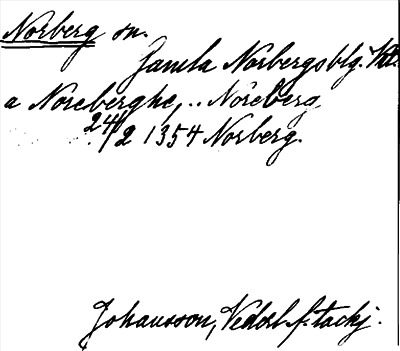 Norberg sn.
Gamla Norbergsblg. Vtl.
a Noreberghe, .. Noreberg,
24/2 1354 Norberg.
Johansson, Vederl. f. tackj.